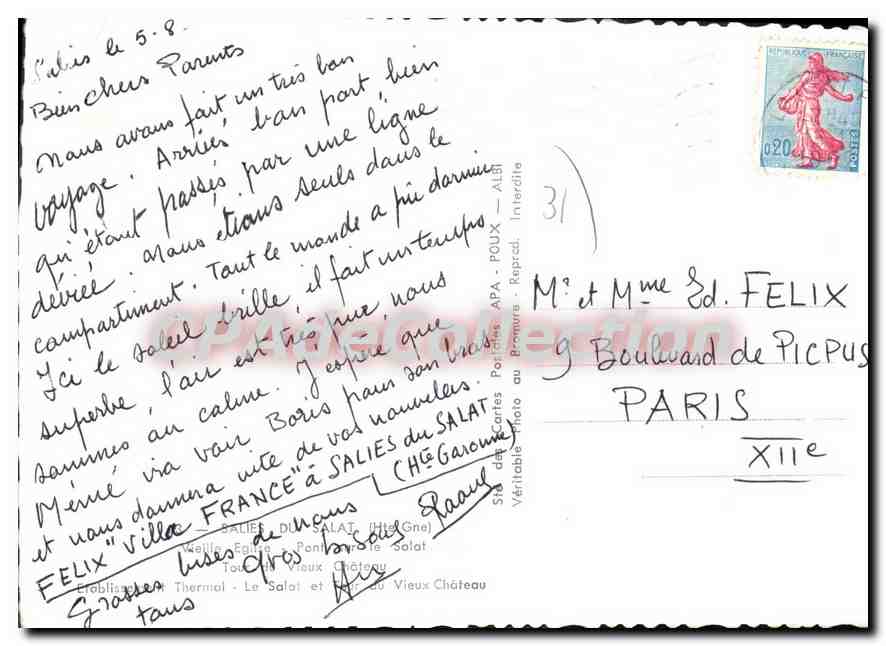 Salies le 5-8.
Bien chers Parents
nous avons fait un très bon
voyage. Arrivés bon port bien
qu'étant passés par une ligne
déviée. nous étions seuls dans le
compartiment. Tout le monde a pu dormir
Ici le soleil brille, il fait un temps
superbe, l'air est très pur, nous
sommes au calme. J'espère que
Mémé va voir Boris pour son bras
et nous donnera vite de vos nouvelles.
FELIX "Villa FRANCE" à SALIES du SALAT
(Hte Garonne)
Grosses bises de nous
tous
Gros bisous Raoul
SALIES DU SALAT (Hte Gne)
Vieille Eglise - Pont sur le Salat
Tour du Vieux Château
Etablissement Thermal - Le Salat et Tour du Vieux Château
Sté des Cartes Postales APA - POUX — ALBI
Véritable Photo au Bromure - Reprod. Interdite
31
REPUBLIQUE FRANÇAISE
0,20
POSTES
Mr et Mme Ed. FELIX
9 Boulevard de PICPUS
PARIS
XIIe
CPAdeCollection